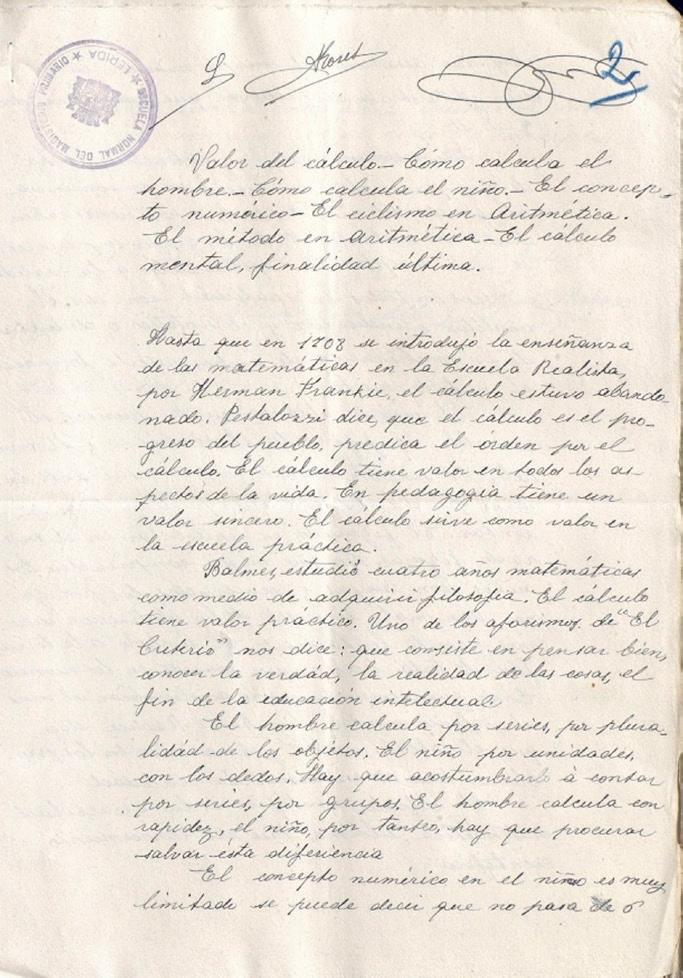 2
ESCUELA NORMAL DEL MAGISTERIO
LERIDA
Valor del cálculo.- Cómo calcula el
hombre.- Cómo calcula el niño.- El concep-
to numérico - El ciclismo en Aritmética.
El método en aritmética - El cálculo
mental, finalidad última.
Hasta que en 1708 se introdujo la enseñanza
de las matemáticas en la Escuela Realista,
por Herman Frankie, el cálculo estuvo abando
nado. Pestalozzi dice, que el cálculo es el pro-
greso del pueblo, predica el orden por el
cálculo. El cálculo tiene valor en todos los as-
pectos de la vida. En pedagogia tiene un
valor sincero. El cálculo sirve como valor en
la escuela práctica.
Balmes, estudió cuatro años matemáticas
como medio de adquirir filosofia. El cálculo
tiene valor práctico. Uno de los aforismos de "El
Criterio" nos dice: que consiste en pensar bien,
conocer la verdád, la realidad de las cosas, el
fin de la educación intelectual.
El hombre calcula por series, por plura-
lidád de los objetos. El niño por unidades,
con los dedos. Hay que acostumbrarlo á contar
por series, por grupos. El hombre calcula con
rapidez, el niño, por tanteo, hay que procurar
salvar ésta diferencia
El concepto numérico en el niño es muy
limitado se puede decir que no pasa de 6